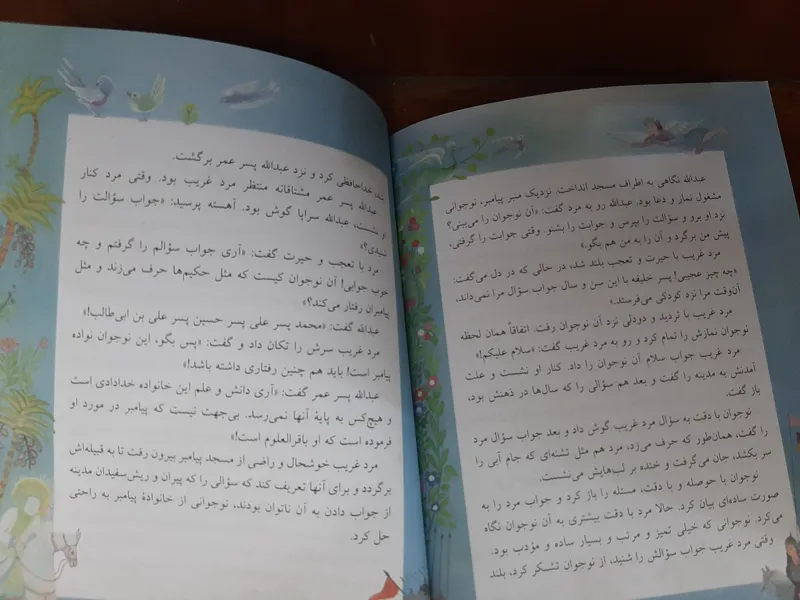 عبدالله نگاهی به اطراف مسجد انداخت. نزدیک منبر پیامبر، نوجوانی
مشغول نماز و دعا بود. عبدالله رو به مرد گفت: «آن نوجوان را می‌بینی؟
نزد او برو و سؤالت را بپرس و جوابت را بشنو. وقتی جوابت را گرفتی،
پیش من برگرد و آن را به من هم بگو.»
مرد غریب با حیرت و تعجب بلند شد، در حالی که در دل می‌گفت:
«چه چیز عجیبی! پسر خلیفه با این سن و سال جواب سؤال مرا نمی‌داند،
آن‌وقت مرا نزد کودکی می‌فرستد.»
مرد غریب با تردید و دودلی نزد آن نوجوان رفت. اتفاقاً همان لحظه
نوجوان نمازش را تمام کرد و رو به مرد غریب گفت: «سلام علیکم!»
مرد غریب جواب سلام آن نوجوان را داد. کنار او نشست و علت
آمدنش به مدینه را گفت و بعد هم سؤالی را که سال‌ها در ذهنش بود،
باز گفت.
نوجوان با دقت به سؤال مرد غریب گوش داد و بعد جواب سؤال مرد
را گفت، همان‌طور که حرف می‌زد، مرد هم مثل تشنه‌ای که جام آبی را
سر بکشد، جان می‌گرفت و خنده بر لب‌هایش می‌نشست.
نوجوان با حوصله و با دقت، مسئله را باز کرد و جواب مرد را به
صورت ساده‌ای بیان کرد. حالا مرد با دقت بیشتری به آن نوجوان نگاه
می‌کرد. نوجوانی که خیلی تمیز و مرتب و بسیار ساده و مؤدب بود.
وقتی مرد غریب جواب سؤالش را شنید، از نوجوان تشکر کرد، بلند
شد، خداحافظی کرد و نزد عبدالله پسر عمر برگشت.
عبدالله پسر عمر مشتاقانه منتظر مرد غریب بود. وقتی مرد کنار
او نشست، عبدالله سراپا گوش بود. آهسته پرسید: «جواب سؤالت را
شنیدی؟»
مرد با تعجب و حیرت گفت: «آری جواب سؤالم را گرفتم و چه
خوب جوابی! آن نوجوان کیست که مثل حکیم‌ها حرف می‌زند و مثل
پیامبران رفتار می‌کند؟»
عبدالله گفت: «محمد پسر علی پسر حسین پسر علی بن ابی‌طالب!»
مرد غریب سرش را تکان داد و گفت: «پس بگو، این نوجوان نواده
پیامبر است! باید هم چنین رفتاری داشته باشد!»
عبدالله پسر عمر گفت: «آری دانش و علم این خانواده خدادادی است
و هیچ‌کس به پایهٔ آنها نمی‌رسد. بی‌جهت نیست که پیامبر در مورد او
فرموده است که او باقرالعلوم است!»
مرد غریب خوشحال و راضی از مسجد پیامبر بیرون رفت تا به قبیله‌اش
برگردد و برای آنها تعریف کند که سؤالی را که پیران و ریش‌سفیدان مدینه
از جواب دادن به آن ناتوان بودند، نوجوانی از خانوادهٔ پیامبر به راحتی
حل کرد.